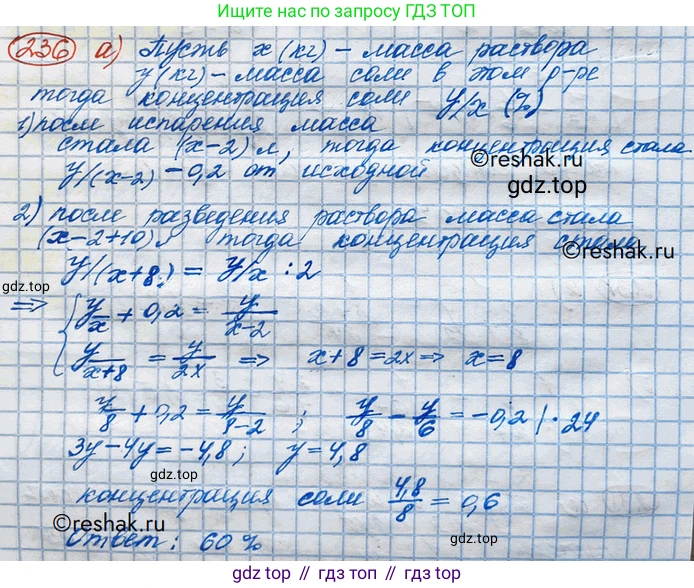 Больше решений смотри по запросу ГДЗ ТОП
236 а) Пусть x (кг) – масса раствора
y (кг) – масса соли в этом р-ре
тогда концентрация соли y/x (%)
1) после испарения масса
стала (x-2) л, тогда концентрация стала
y/(x-2) – 0,2 от исходной
©reshak.ru
gdz.top
2) после разведения раствора масса стала
(x-2+10), тогда концентрация стала
©reshak.ru
y/(x+8) = y/x : 2
gdz.top
⇒ { y/x + 0,2 = y/(x-2)
y/(x+8) = y/2x ⇒ x+8=2x ⇒ x=8
y/8 + 0,2 = y/(8-2) ; y/8 - y/6 = -0,2 | · 24
3y-4y=-4,8; y=4,8
концентрация соли 4,8/8 = 0,6
©reshak.ru
©reshak.ru
Ответ: 60 %
gdz.top
gdz.top // gdz.top // gdz.top